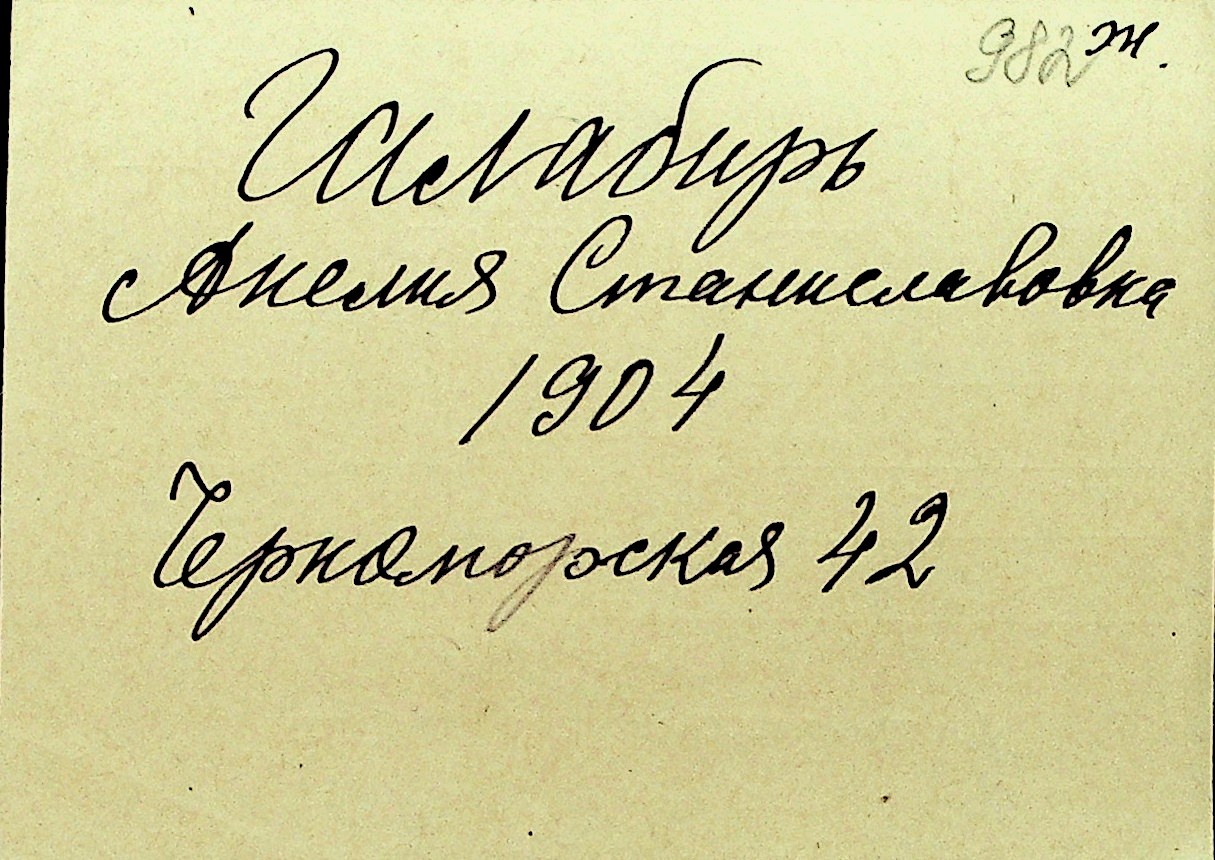 982 ж.
Шлабирь
Анелия Станиславовна
1904
Черноморская 42